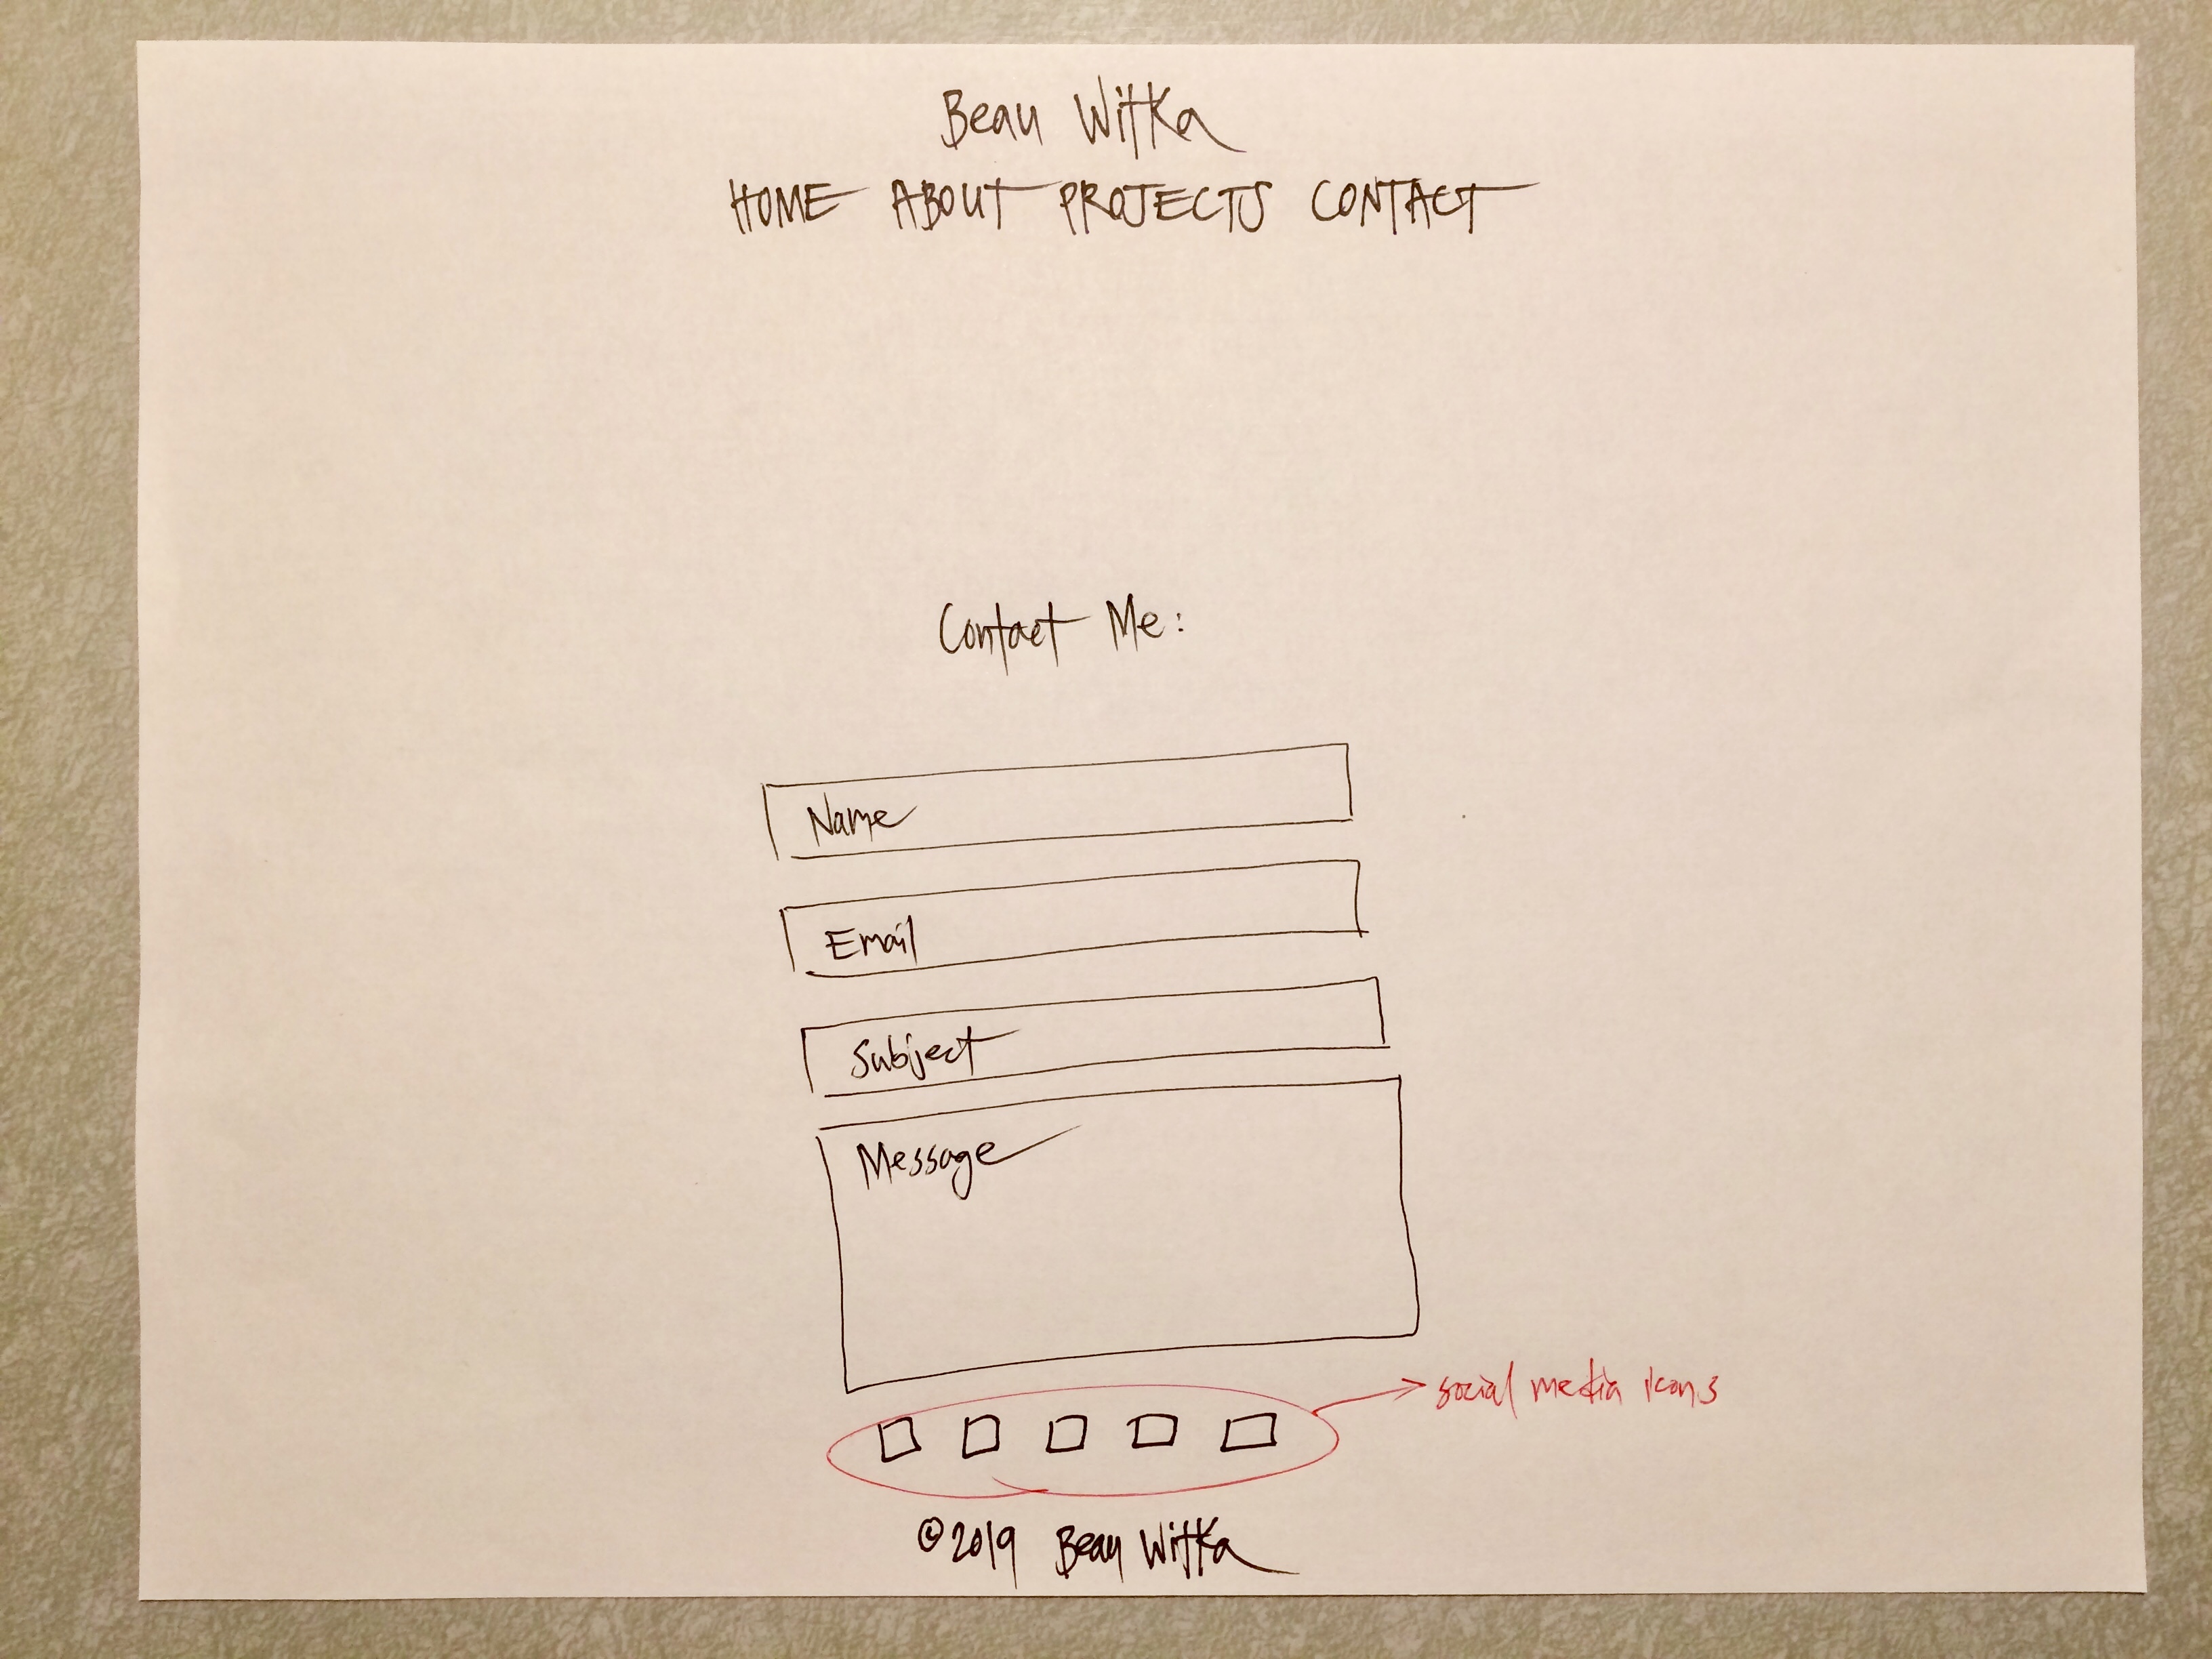 Beau Witka
HOME ABOUT PROJECTS CONTACT
Contact Me:
Name
Email
Subject
Message
social media icons
©2019 Beau Witka